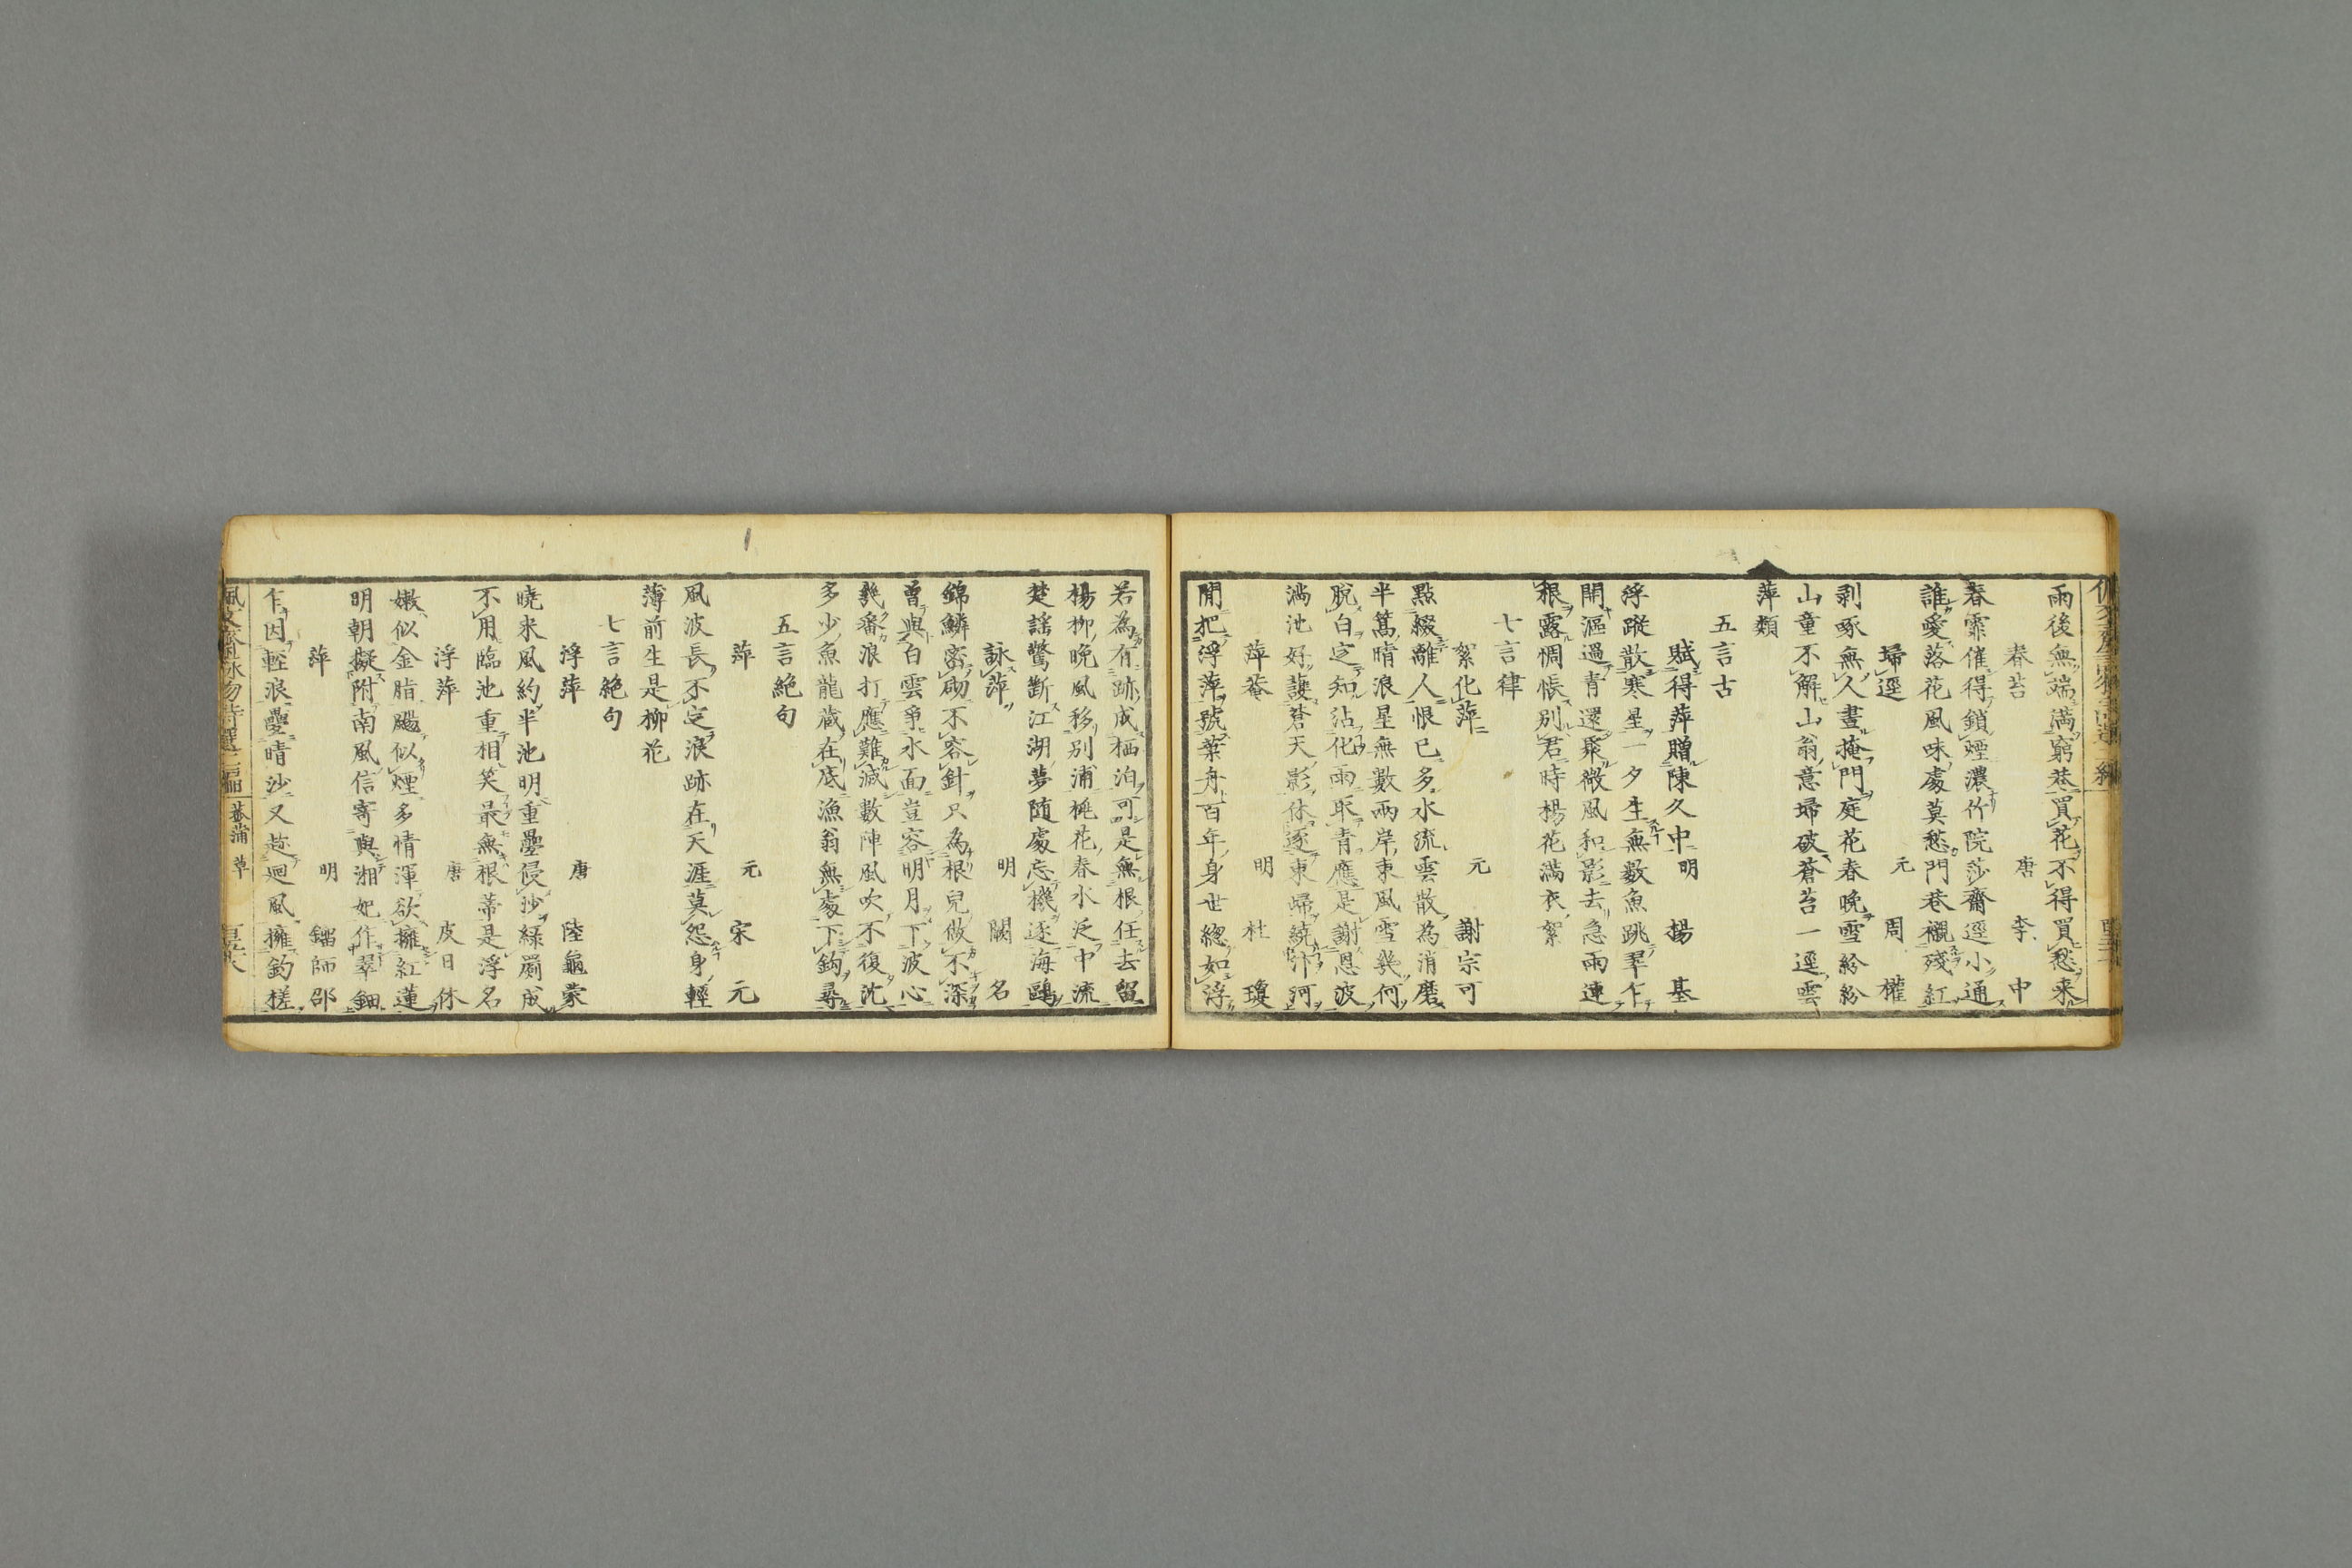 雨後無端満窮巷買花不得買愁来
春苔 唐 李 中
春霏催得鎖煙濃竹院莎齋逕小通
誰愛落花風味處莫愁門巷襯殘紅
掃逕 元 周 權
剥啄無人晝掩門庭花春晩雪紛紛
山童不解山翁意掃破蒼苔一逕雲
萍類
五言古
賦得萍贈陳久中 明 楊 基
浮蹤散寒星一夕生無數魚跳翠乍
開漚過青還聚微風和影去急雨連
根露惆悵別君時楊花満衣絮
七言律
絮化萍 元 謝宗可
點綴離人恨已多水流雲散為消磨
半篙晴浪星無數兩岸東風雪幾何
脫白定知沾化雨取青應是謝恩波
満池好護蒼天影休逐東歸繞汴河
萍菴 明 杜 瓊
閒把浮萍號葉舟百年身世總如浮
若為有跡成栖泊可是無根任去留
楊柳晩風移別浦桃花春水泛中流
楚謠驚斷江湖夢随處忘機逐海鷗
詠萍 明 闕 名
錦鱗密砌不容針只為根兒做不深
曾與白雲爭水面豈容明月下波心
幾番浪打應難滅數陣風吹不復沈
多少魚龍蔵在底漁翁無處下鈎尋
五言絶句
萍 元 宋 元
風波長不定浪跡在天涯莫怨身輕
薄前生是柳花
七言絶句
浮萍 唐 陸龜蒙
曉來風約半池明重疊侵沙緑罽成
不用臨池重相笑最無根蒂是浮名
浮萍 唐 皮日休
嫩似金脂颺似煙多情渾欲擁紅蓮
明朝擬附南風信寄與湘妃作翠鈿
萍 明 鎦師邵
乍因輕浪疊晴沙又趁廻風擁釣槎